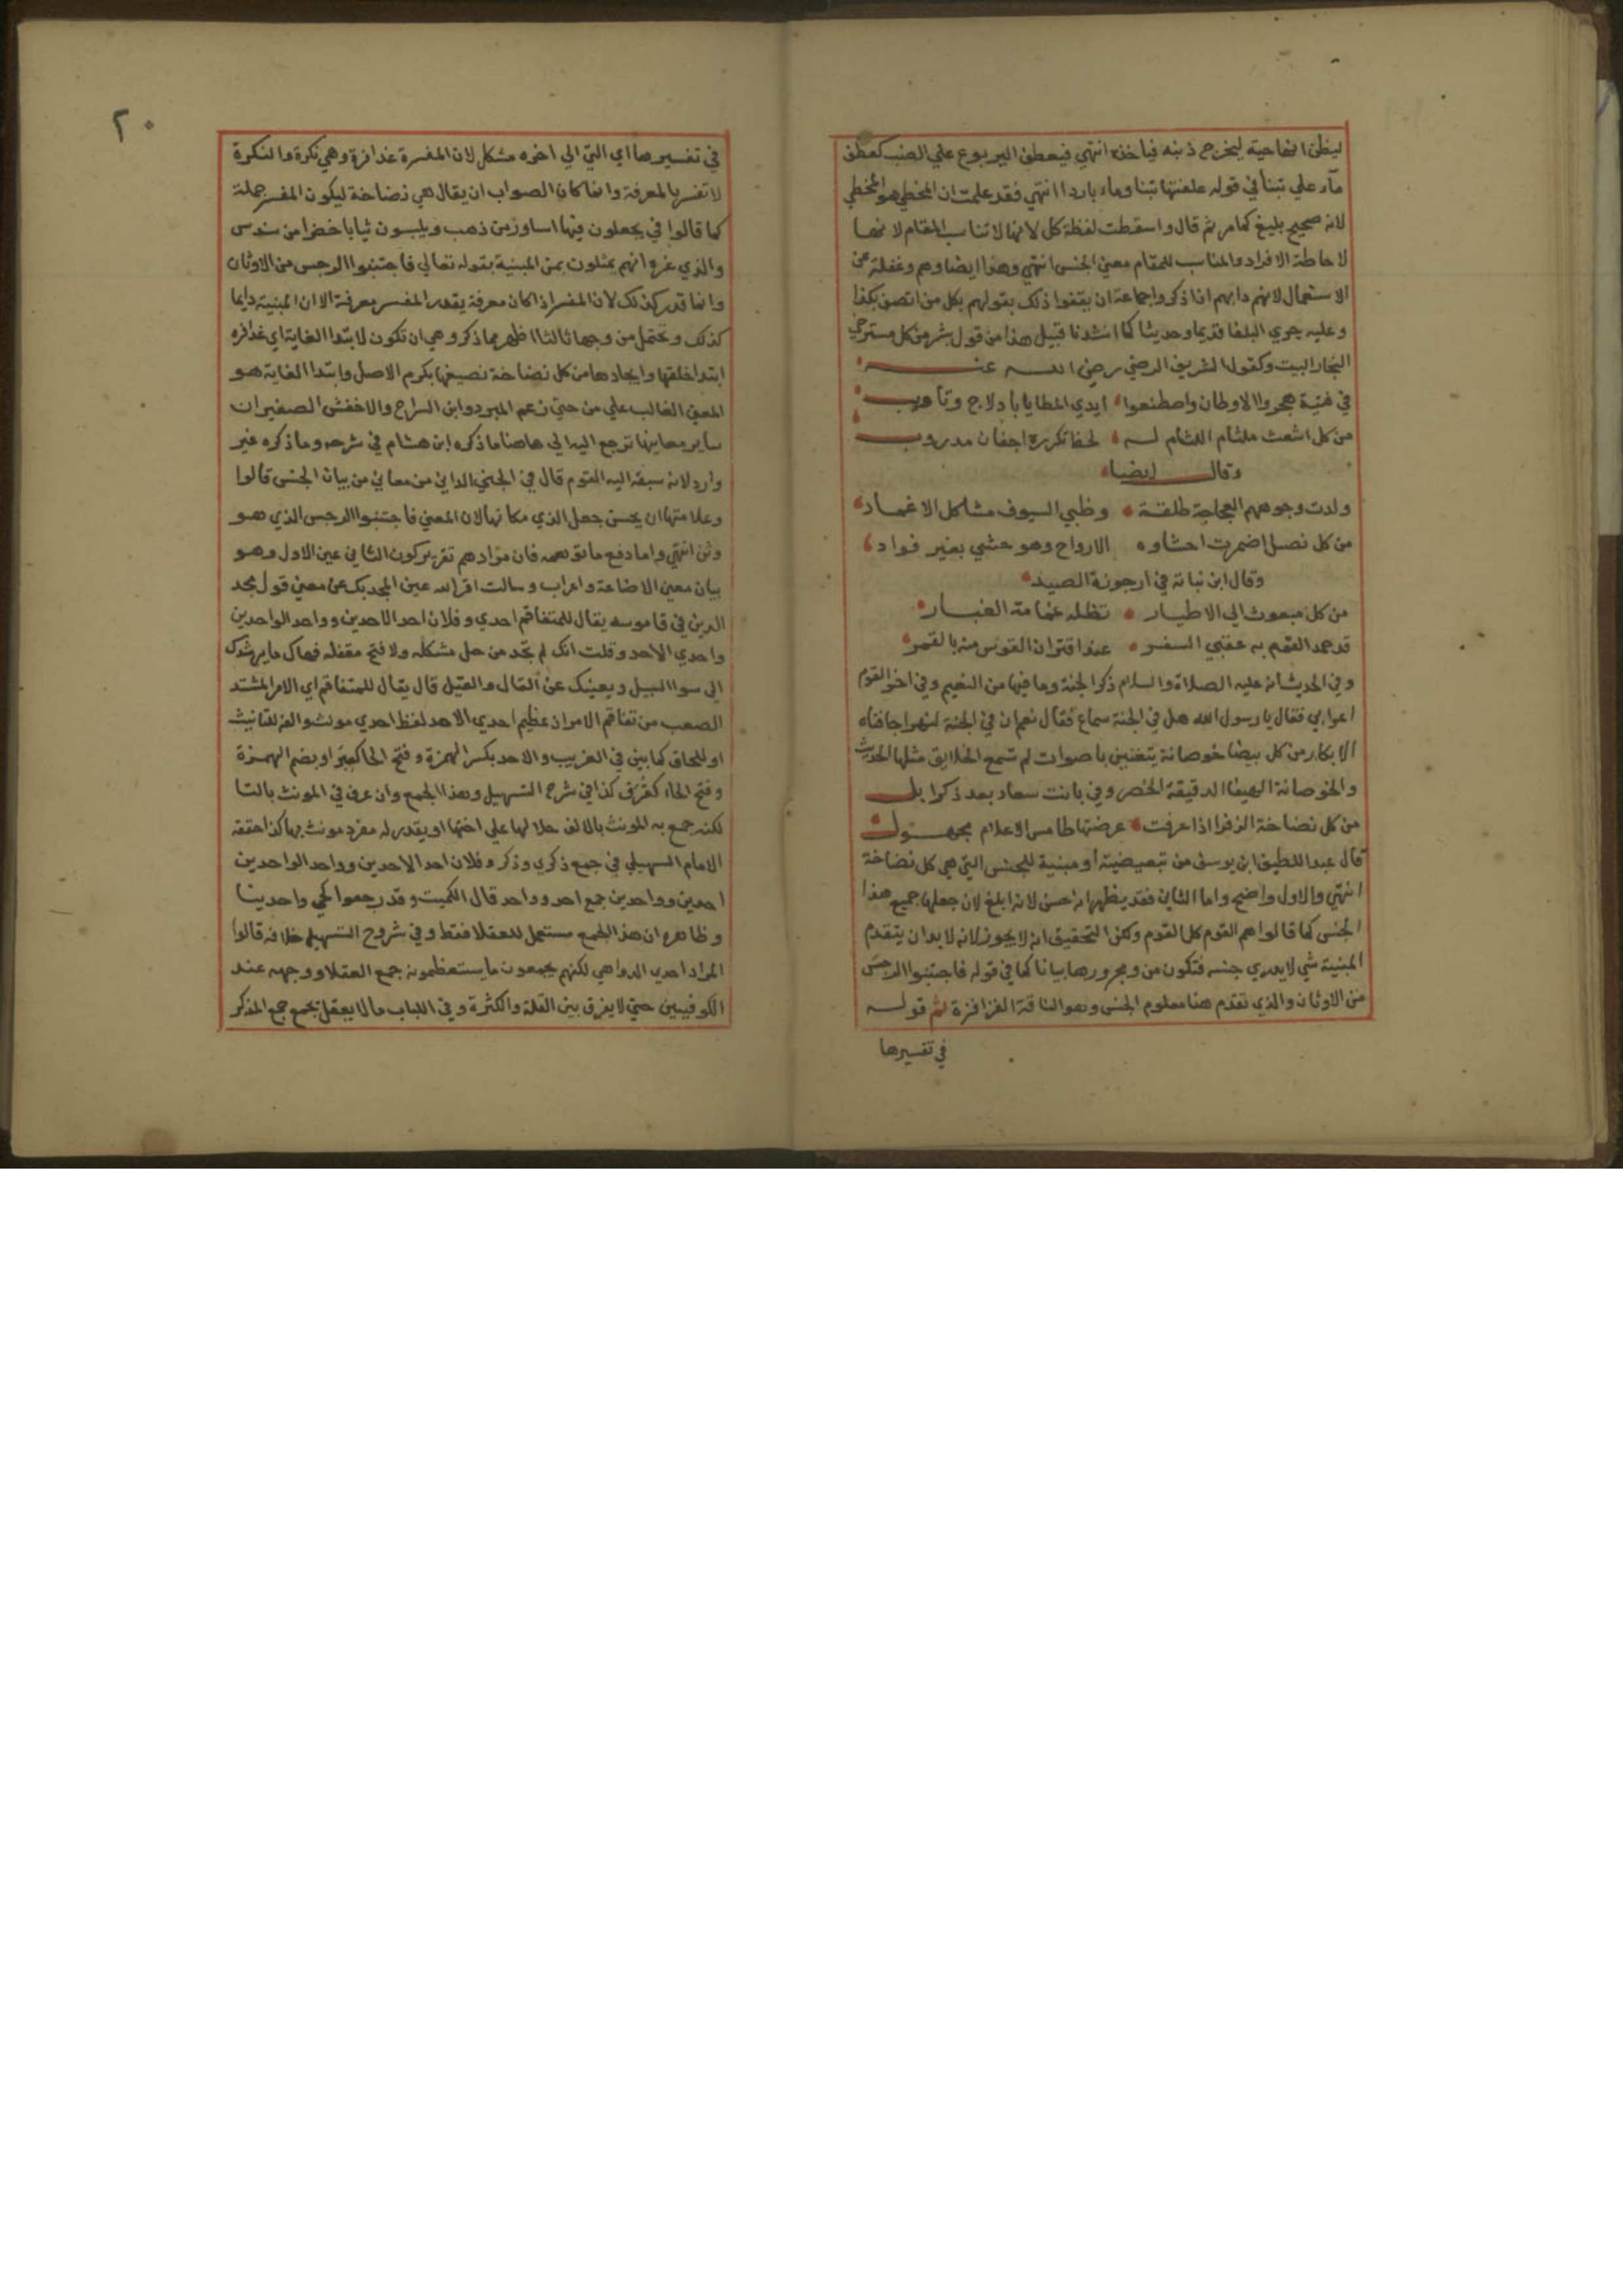 ليظن انها حية ليخرج ذنبه فياخذه انتهي فيعطف اليربوع علي الضب كعطف
ماء علي تبنا في قوله علفتها تبنا وماء باردا انتهي فقد علمت ان المخطي هو المخطي
لانه صحيح بليغ كما مر ثم قال واسقطت لفظة كل لانها لا تناسب المقام لانها
لاحاطة الافراد والمناسب للمقام معني الجنس انتهي وهذا ايضا وهم وغفلة عن
الاستعمال لانهم دابهم اذا ذكروا جماعة ان يقفوا ذلك بقولهم بكل من اتصف بكذا
وعليه جري البلغا قديما وحديثا كما انشدنا قبيل هذا من قول شر من كل مسترخي
النجار البيت وكقول الشريف الرضي رضي الله عنه
في فتية هجروا الاوطان واصطنعوا ايدي المطايا بادلاج وتاويب
من كل اشعث ملثام اللثام له لحظ تكرره اجفان مدروب
وقال ايضا
ولدت وجوههم العجاجة طلقة وظبي السيوف مشاكل الاغماد
من كل نصل اضمرت احشاوه الارواح وهو حشي بغير فواد
وقال ابن نباتة في ارجوزة الصيد
من كل مبعوث الي الاطيار تظله غمامة الغبار
قد حمد القوم به عقبي السفر عند اقتران القوس منه بالقمر
وفي الحديث انه عليه الصلاة والسلام ذكر الجنة وما فيها من النعيم وفي اخر القوم
اعرابي فقال يا رسول الله هل في الجنة سماع فقال نعم ان في الجنة لنهرا حافتاه
الابكار من كل بيضا خوصانة يتغنين باصوات لم تسمع الخلايق مثلها الحديث
والخوصانة الهيفا الدقيقة الخصر وفي بانت سعاد بعد ذكر ابل
من كل نضاخة الذفرا اذا عرقت عرضتها طامس الاعلام مجهول
قال عبد اللطيف ابن يوسف من تبعيضية او مبنية للجنس التي هي كل نضاخة
انتهي والاول واضح واما الثاني فقد يظهر انه احسن لانه ابلغ لان جعلها جميع هذا
الجنس كما قالوا هم القوم كل القوم ولكن التحقيق انه لا يجوز لانه لا بد ان يتقدم
المبنية شي لا يدري جنسه فتكون من ومجرورها بيانا كما في قوله فاجتنبوا الرجس
من الاوثان والذي تقدم هنا معلوم الجنس وهو الناقة العذافرة ثم قوله
في تفسيرها
٢٠
في تفسيرها اي التي الي اخره مشكل لان المفسرة عذافرة وهي نكرة والنكرة
لا تفسر بالمعرفة وانما كان الصواب ان يقال هي نضاخة ليكون المفسر جملة
كما قالوا في يحلون فيها اساور من ذهب ويلبسون ثيابا خضرا من سندس
والذي غره انهم يمثلون بمن المبنية بقوله تعالي فاجتنبوا الرجس من الاوثان
وانما قدر كذلك لان المفسر اذا كان معرفة يقدر المفسر معرفة الا ان المبنية دايما
كذلك وتحتمل من وجها ثالثا اظهر مما ذكر وهي ان تكون لابتدا الغاية اي عذافرة
ابتدا خلقها وايجادها من كل نضاخة نصيفها بكرم الاصل وابتدا الغاية هو
المعني الغالب علي من حتي زعم المبرد وابن السراج والاخفش الصغير ان
ساير معانيها ترجع اليه الي هاهنا ما ذكره ابن هشام في شرحه وما ذكره غير
وارد لانه سبقه اليه القوم قال في الجني الداني من معاني من بيان الجنس قالوا
وعلامتها ان يحسن جعل الذي مكانها لان المعني فاجتنبوا الرجس الذي هو
وثن انتهي واما دفع ما توهمه فان مرادهم تقرير كون الثاني عين الاول وهو
بيان معني الاضاعة واعراب وسالت اقر الله عين المجد بك عن معني قول مجد
الدين في قاموسه يقال للمتفاقم احدي وفلان احد الاحدين وواحد الواحدين
واحدي الاحد وقلت انك لم تجد من حل مشكله ولا فتح مقفله فهاك ما يرشدك
الي سوا السبيل ويعينك عن القال والقيل قال يقال للمتفاقم اي الامر المشتد
الصعب من تفاقم الامر اذ عظيم احدي الاحد لفظ احدي مونث والفه للتانيث
او للالحاق كما بين في الغريب والاحد بكسر الهمزة وفتح الحا كعبر او بضم الهمزة
وفتح الحاء كغرف كذا في شرح التسهيل وهذا الجمع وان عرف في المونث بالتا
لكنه جمع به المونث بالالف حلا لها علي اختها او يقدر له مفرد مونث بها كذا حققه
الامام السهيلي في جمع ذكري وذكر وفلان احد الاحدين وواحد الواحدين
احدين وواحدين جمع احد وواحد قال الكميت وقد رجعوا كحي واحدينا
وظاهره ان هذا الجمع مستعمل للعقلا فقط وفي شروح التسهيل خلافه قالوا
المراد احدي الدواهي لكنهم يجمعون ما يستعظمونه جمع العقلا ووجهه عند
الكوفيين حتي لا يفرق بين القلة والكثرة وفي اللباب مالا يعقل يجمع جمع المذكر